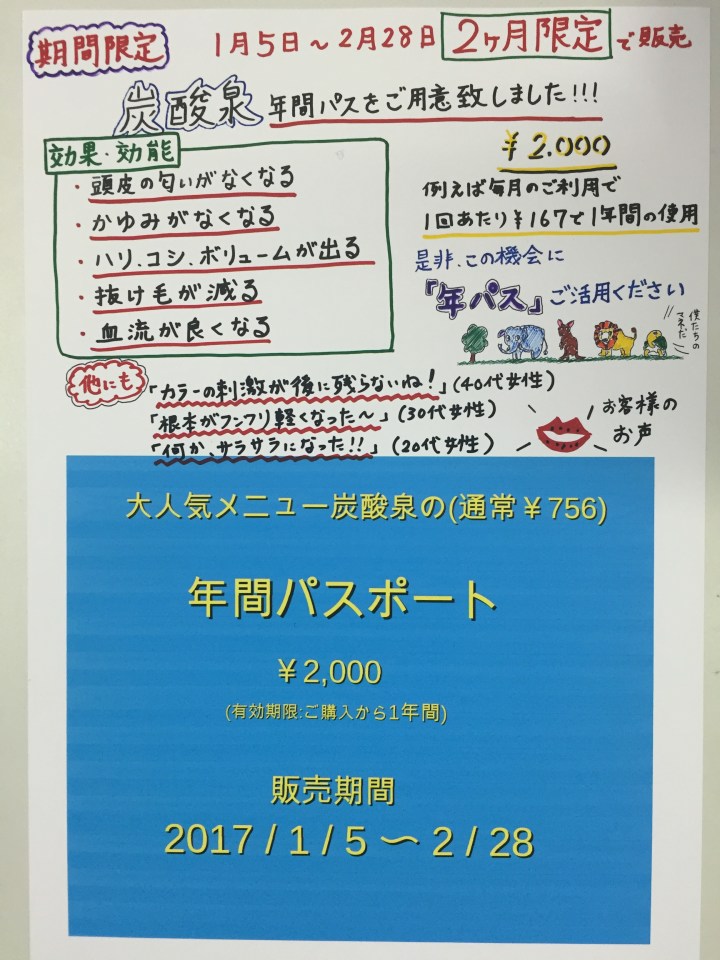 期間限定
1月5日~2月28日 2ヶ月限定で販売
炭酸泉 年間パスをご用意致しました!!!
効果・効能
・頭皮の匂いがなくなる
・かゆみがなくなる
・ハリ、コシ、ボリュームが出る
・抜け毛が減る
・血流が良くなる
¥2.000
例えば毎月のご利用で
1回あたり¥167で1年間の使用
是非、この機会に
「年パス」ご活用ください
僕たちの
マネだ
他にも
「カラーの刺激が後に残らないね!」(40代女性)
「根本がフンワリ軽くなった~」(30代女性)
「何か、サラサラになった!!」(20代女性)
お客様の
お声
大人気メニュー炭酸泉の(通常¥756)
年間パスポート
¥2,000
(有効期限:ご購入から1年間)
販売期間
2017 / 1 / 5 〜 2 / 28